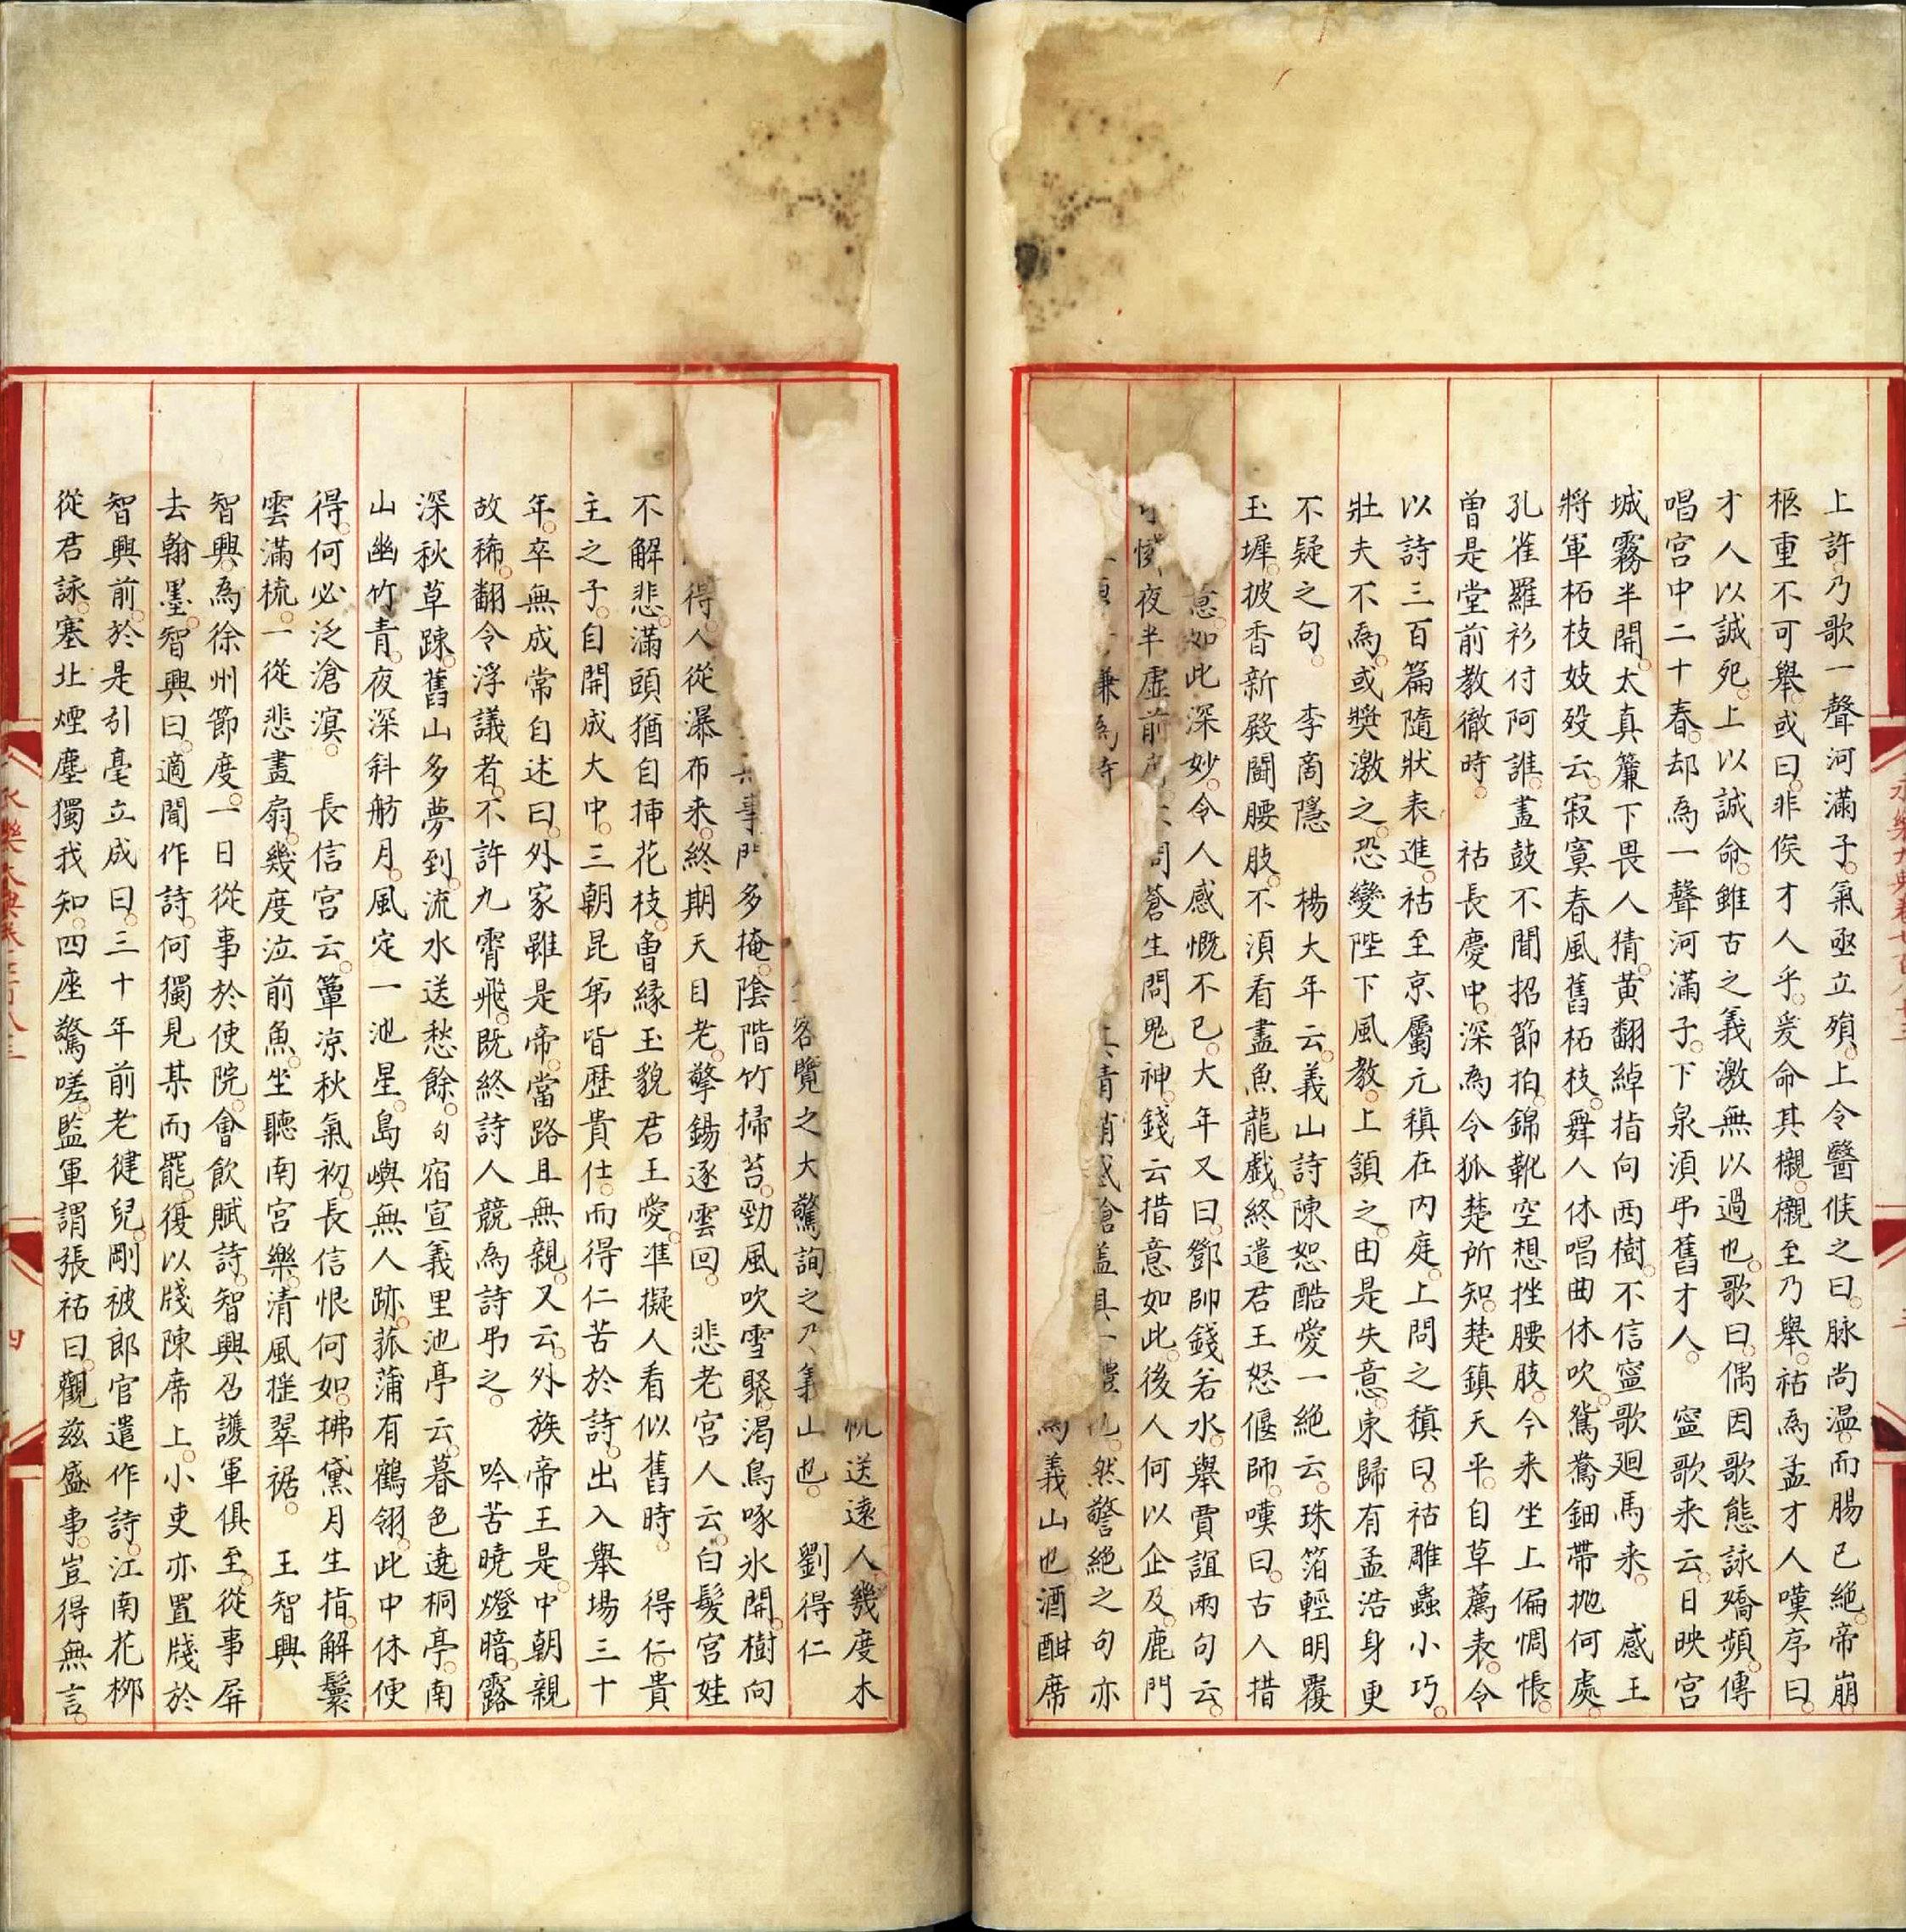 上許乃歌一聲河滿子氣亟立殞上令醫候之曰脉尚溫而腸已絕帝崩
柩重不可舉或曰非俟才人乎爰命其櫬櫬至乃舉祜為孟才人嘆序曰
才人以誠死上以誠命雖古之義激無以過也歌曰偶因歌態詠嬌頻傳
唱宮中二十春却為一聲河滿子下泉湏弔舊才人 寧歌来云日映宮
城霧半開太真簾下畏人猜黃翻綽指向西樹不信寧歌廻馬来 感王
將軍柘枝妓殁云寂寞春風舊柘枝舞人休唱曲休吹鴛鴦鈿帶抛何處
孔雀羅衫付阿誰畫鼓不聞招節拍錦靴空想挫腰肢今来坐上偏惆悵
曽是堂前教徹時 祜長慶中深為令狐楚所知楚鎮天平自草薦表令
以詩三百篇隨狀表進祜至京屬元稹在内庭上問之稹曰祜雕蟲小巧
壯夫不為或奬激之恐變陛下風教上頷之由是失意東歸有孟浩身更
不疑之句 李商隱 楊大年云義山詩陳恕酷愛一絕云珠箔輕明覆
玉墀披香新殿闘腰肢不湏看盡魚龍戲終遣君王怒偃師嘆曰古人措
意如此深妙令人感慨不已大年又曰鄧帥錢若水舉賈誼兩句云
夜半虛前 問蒼生問鬼神錢云措意如此後人何以企及鹿門
兼為 青 滄盖具一體 然警絕之句亦
為義山也酒酣席
送遠人幾度木
客覽之大驚詢之乃義山也 劉得仁
事門多掩陰階竹掃苔勁風吹雪聚渴鳥啄氷開樹向
得人從瀑布来終期天目老擎錫逐雲回 悲老宮人云白髮宮娃
不解悲滿頭猶自揷花枝曽緣玉貌君王愛准擬人看似舊時 得仁貴
主之子自開成大中三朝昆弟皆歷貴仕而得仁苦於詩出入舉場三十
年卒無成常自述曰外家雖是帝當路且無親又云外族帝王是中朝親
故稀翻令浮議者不許九霄飛既終詩人競為詩弔之 吟苦曉燈暗露
深秋草踈舊山多夢到流水送愁餘句宿宣義里池亭云暮色遶桐亭南
山幽竹青夜深斜舫月風定一池星島嶼無人跡菰蒲有鶴翎此中休便
得何必泛滄溟 長信宮云簟凉秋氣初長信恨何如拂黛月生指解鬟
雲滿梳一從悲畫扇幾度泣前魚坐聽南宮樂清風揺翠裾 王智興
智興為徐州節度一日從事於使院會飲賦詩智興召護軍俱至從事屏
去翰墨智興曰適聞作詩何獨見某而罷復以牋陳席上小吏亦置牋於
智興前於是引毫立成曰三十年前老徤兒剛被郎官遣作詩江南花柳
從君詠塞北煙塵獨我知四座驚嗟監軍謂張祜曰觀兹盛事豈得無言